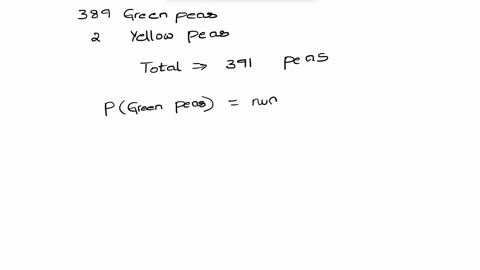 389 Green peas
2 Yellow peas
Total ⇒ 391 peas
P(Green peas) =